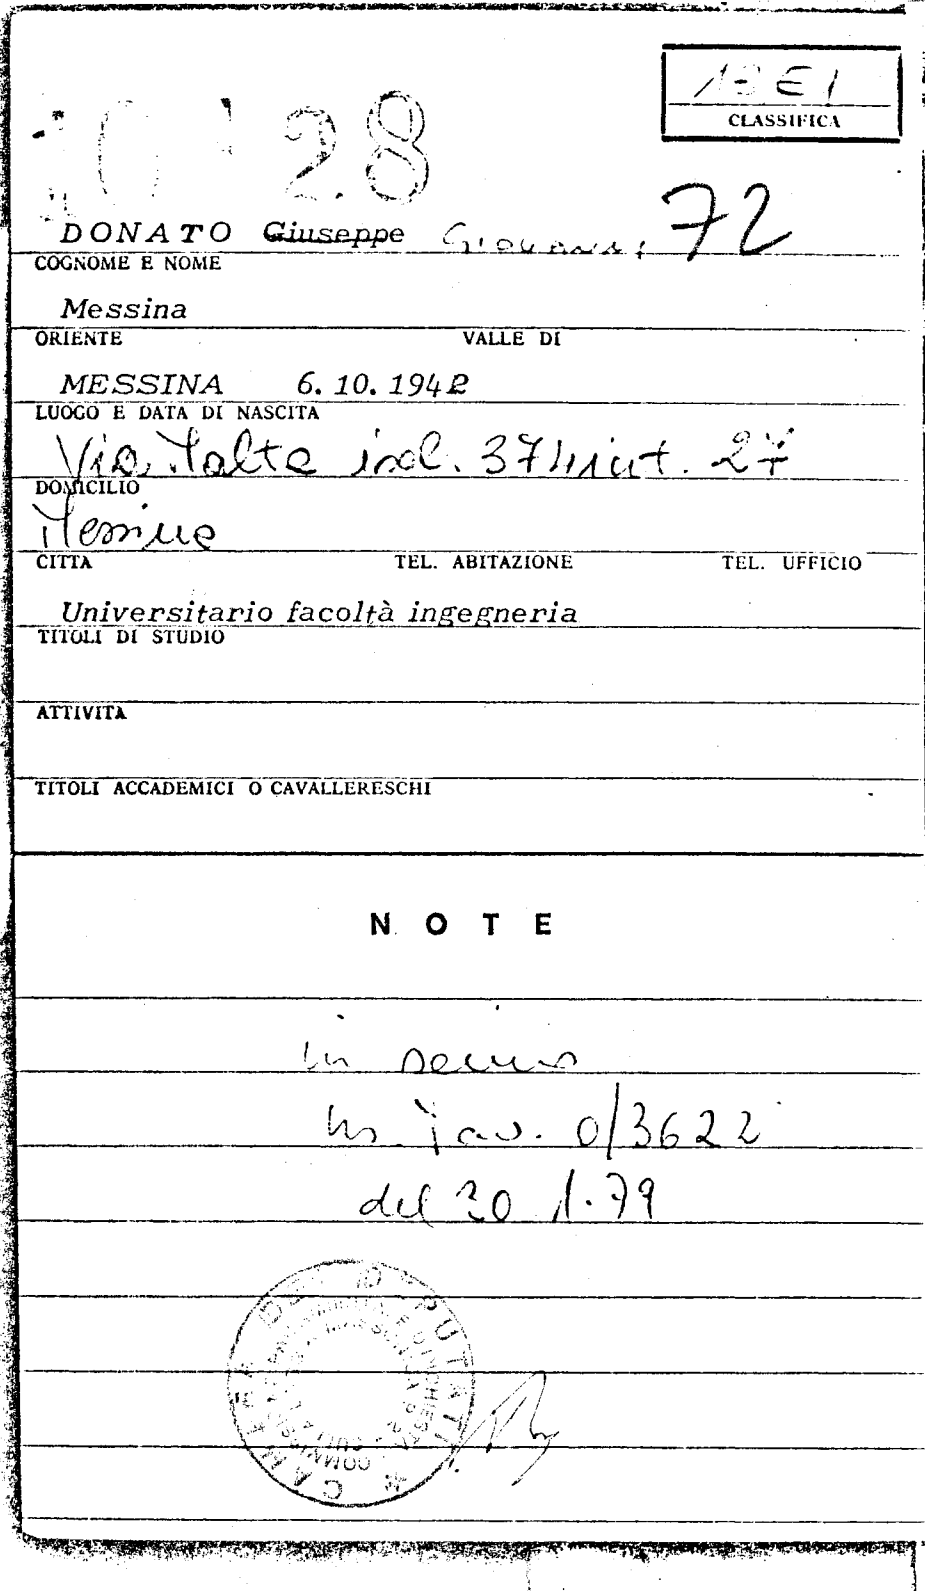 CLASSIFICA
28
DONATO Giuseppe Giovanni 72
COGNOME E NOME
Messina
ORIENTE VALLE DI
MESSINA 6.10.1942
LUOGO E DATA DI NASCITA
Via isol. 27
DOMICILIO
Messina
CITTA TEL. ABITAZIONE TEL. UFFICIO
Universitario facoltà ingegneria
TITOLI DI STUDIO
ATTIVITA
TITOLI ACCADEMICI O CAVALLERESCHI
NOTE
in
0/3622
del 1.79
CAMERA DEI DEPUTATI